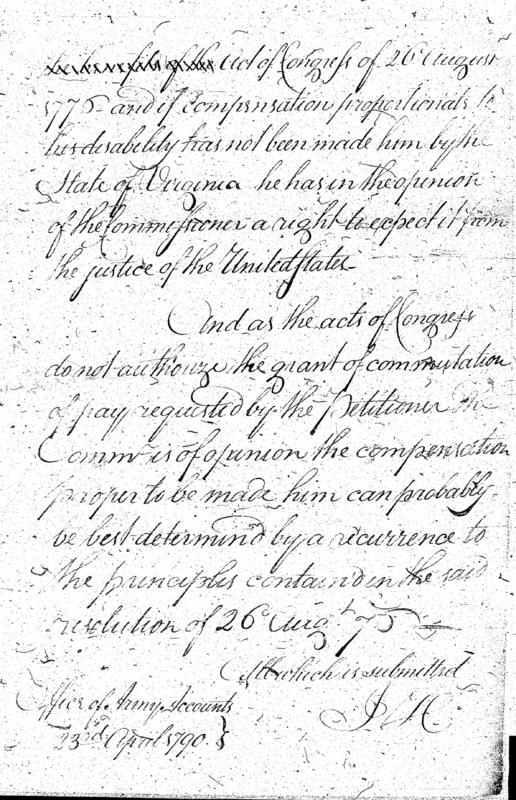 of the Act of Congress of 26 August
1776 and if compensation proportionate to
his disability has not been made him by the
State of Virginia he has in the opinion
of the Commissioner a right to expect it from
the justice of the United States
And as the acts of Congress
do not authorize the grant of commutation
of pay requested by the Petitioner the
Commr is of opinion the compensation
proper to be made him can probably
be best determind by a recurrence to
the principles containd in the said
resolution of 26 Augt
All which is submitted
J. H.
Office of Army Accounts
23d April 1790.